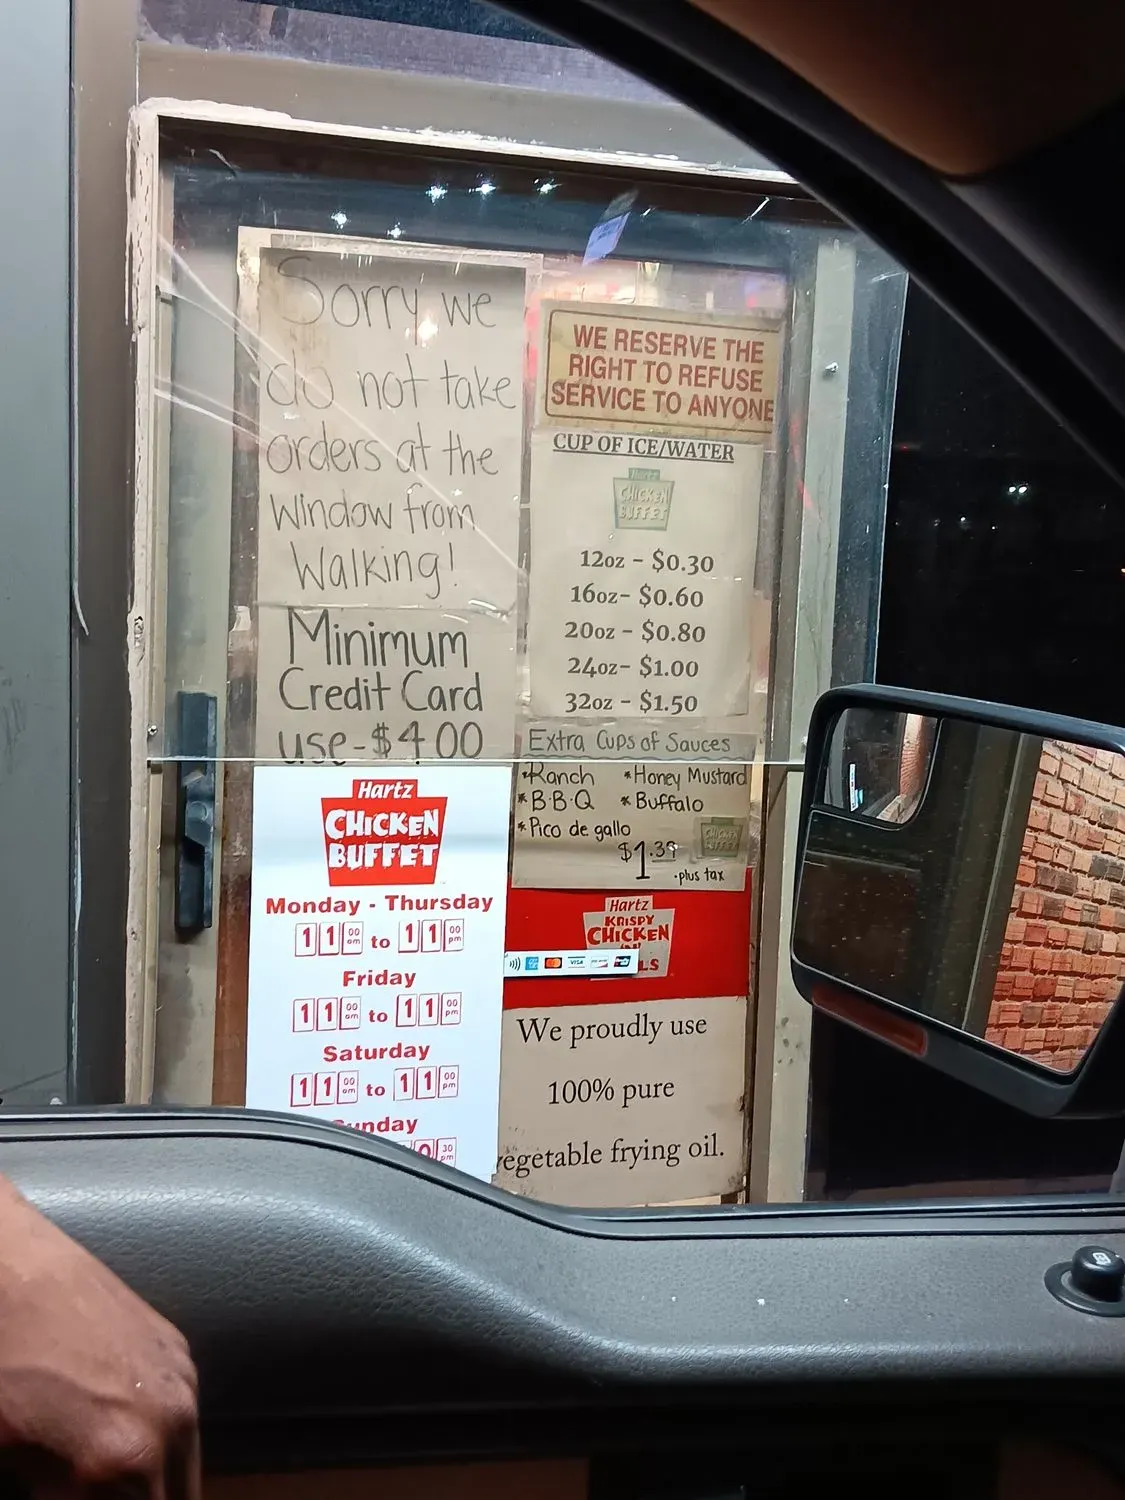 Sorry we
do not take
orders at the
window from
Walking!
Minimum
Credit Card
use-$4.00
WE RESERVE THE
RIGHT TO REFUSE
SERVICE TO ANYONE
CUP OF ICE/WATER
Hartz
CHICKEN
BUFFET
12oz - $0.30
16oz- $0.60
20oz - $0.80
24oz- $1.00
32oz - $1.50
Extra Cups of Sauces
*Ranch *Honey Mustard
*B.B.Q *Buffalo
*Pico de gallo
$1.39
•plus tax
CHICKEN
BUFFET
Hartz
CHICKEN
BUFFET
Monday - Thursday
11 00 am to 11 00 pm
Friday
11 00 am to 11 00 pm
Saturday
11 00 am to 11 00 pm
Sunday
30 pm
Hartz
KRISPY
CHICKEN
VISA
LS
We proudly use
100% pure
vegetable frying oil.